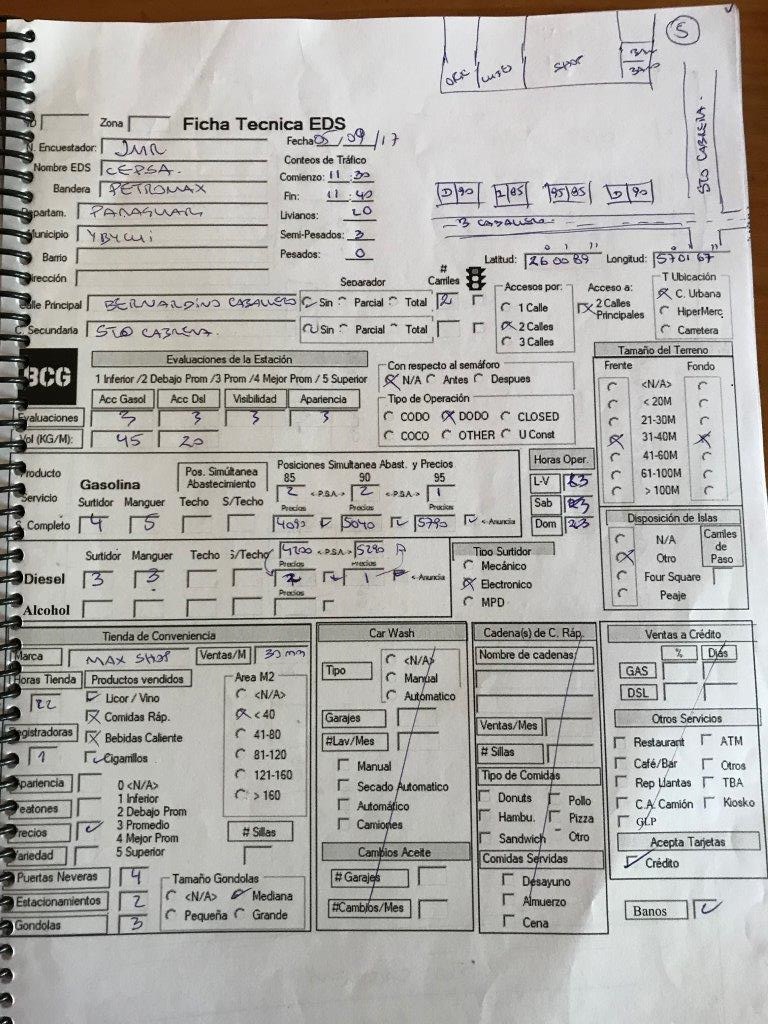 5
SHOP
STO CABRERA
ID Zona Ficha Tecnica EDS
N. Encuestador: JMR Fecha 05/09/17
Nombre EDS CEPSA. Conteos de Tráfico
Bandera PETROMAX Comienzo: 11:30
Fin: 11:40
Departam. PARAGUARI Livianos: 20
Municipio YBYCUI Semi-Pesados: 3
Barrio Pesados: 0
D 90 95 85 D 90
B CABALLERO
Latitud: 260089 Longitud: 570167
Dirección Separador # Carriles Accesos por: Acceso a: T Ubicación
Calle Principal BERNARDINO CABALLERO Sin Parcial Total 2 1 Calle 2 Calles Principales C. Urbana
2 Calles HiperMerc
C. Secundaria STO CABRERA. Sin Parcial Total 3 Calles Carretera
BCG
Evaluaciones de la Estación Con respecto al semáforo Tamaño del Terreno
1 Inferior /2 Debajo Prom /3 Prom /4 Mejor Prom / 5 Superior N/A Antes Despues Frente Fondo
Acc Gasol Acc Dsl Visibilidad Apariencia Tipo de Operación <N/A>
Evaluaciones 3 3 3 3 CODO DODO CLOSED < 20M
Vol (KG/M): 45 20 COCO OTHER U Const 21-30M
31-40M
41-60M
61-100M
> 100M
Producto Gasolina Pos. Simúltanea Abastecimiento Posiciones Simultanea Abast. y Precios Horas Oper.
85 90 95 L-V 23
Servicio Surtidor Manguer Techo S/Techo 2 <-P.S.A-> 2 <-P.S.A-> 1 Sab 23
Precios Precios Precios Dom 23
S. Completo 4 5 4090 5040 5790 <-Anuncia
Disposición de Islas
N/A Carriles de Paso
Otro
Four Square
Peaje
Surtidor Manguer Techo S/Techo 4200 <-P.S.A-> 5290 Tipo Surtidor
Precios Precios Mecánico
Diesel 3 3 2 1 <-Anuncia Electronico
Precios MPD
Alcohol
Tienda de Conveniencia Car Wash Cadena(s) de C. Ráp. Ventas a Crédito
Marca MAX SHOP Ventas/M 30 mm Nombre de cadenas: % Días
Horas Tienda Productos vendidos Area M2 Tipo <N/A> GAS
22 Licor / Vino <N/A> Manual DSL
Comidas Ráp. < 40 Automatico Otros Servicios
Registradoras Bebidas Caliente 41-80 Garajes Ventas/Mes Restaurant ATM
1 Cigarrillos 81-120 #Lav/Mes # Sillas Café/Bar Otros
Apariencia 0 <N/A> 121-160 Manual Tipo de Comidas Rep Llantas TBA
Peatones 1 Inferior > 160 Secado Automatico Donuts Pollo C.A. Camión Kiosko
2 Debajo Prom Automático Hambu. Pizza GLP
Precios 3 Promedio # Sillas Camiones Sandwich Otro Acepta Tarjetas
4 Mejor Prom Cambios Aceite Comidas Servidas Crédito
Variedad 5 Superior
Puertas Neveras 4 Tamaño Gondolas # Garajes Desayuno
Estacionamientos 2 <N/A> Mediana Almuerzo Banos
Gondolas 3 Pequeña Grande #Cambios/Mes Cena